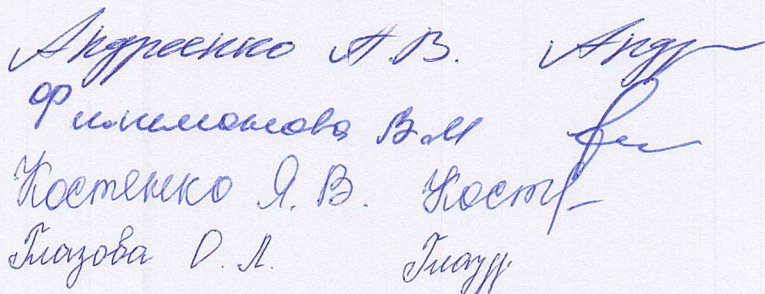 Андреенко А.В. Андр
Филимонова В.М
Костенко Я.В. Кост
Глазова О.Л.